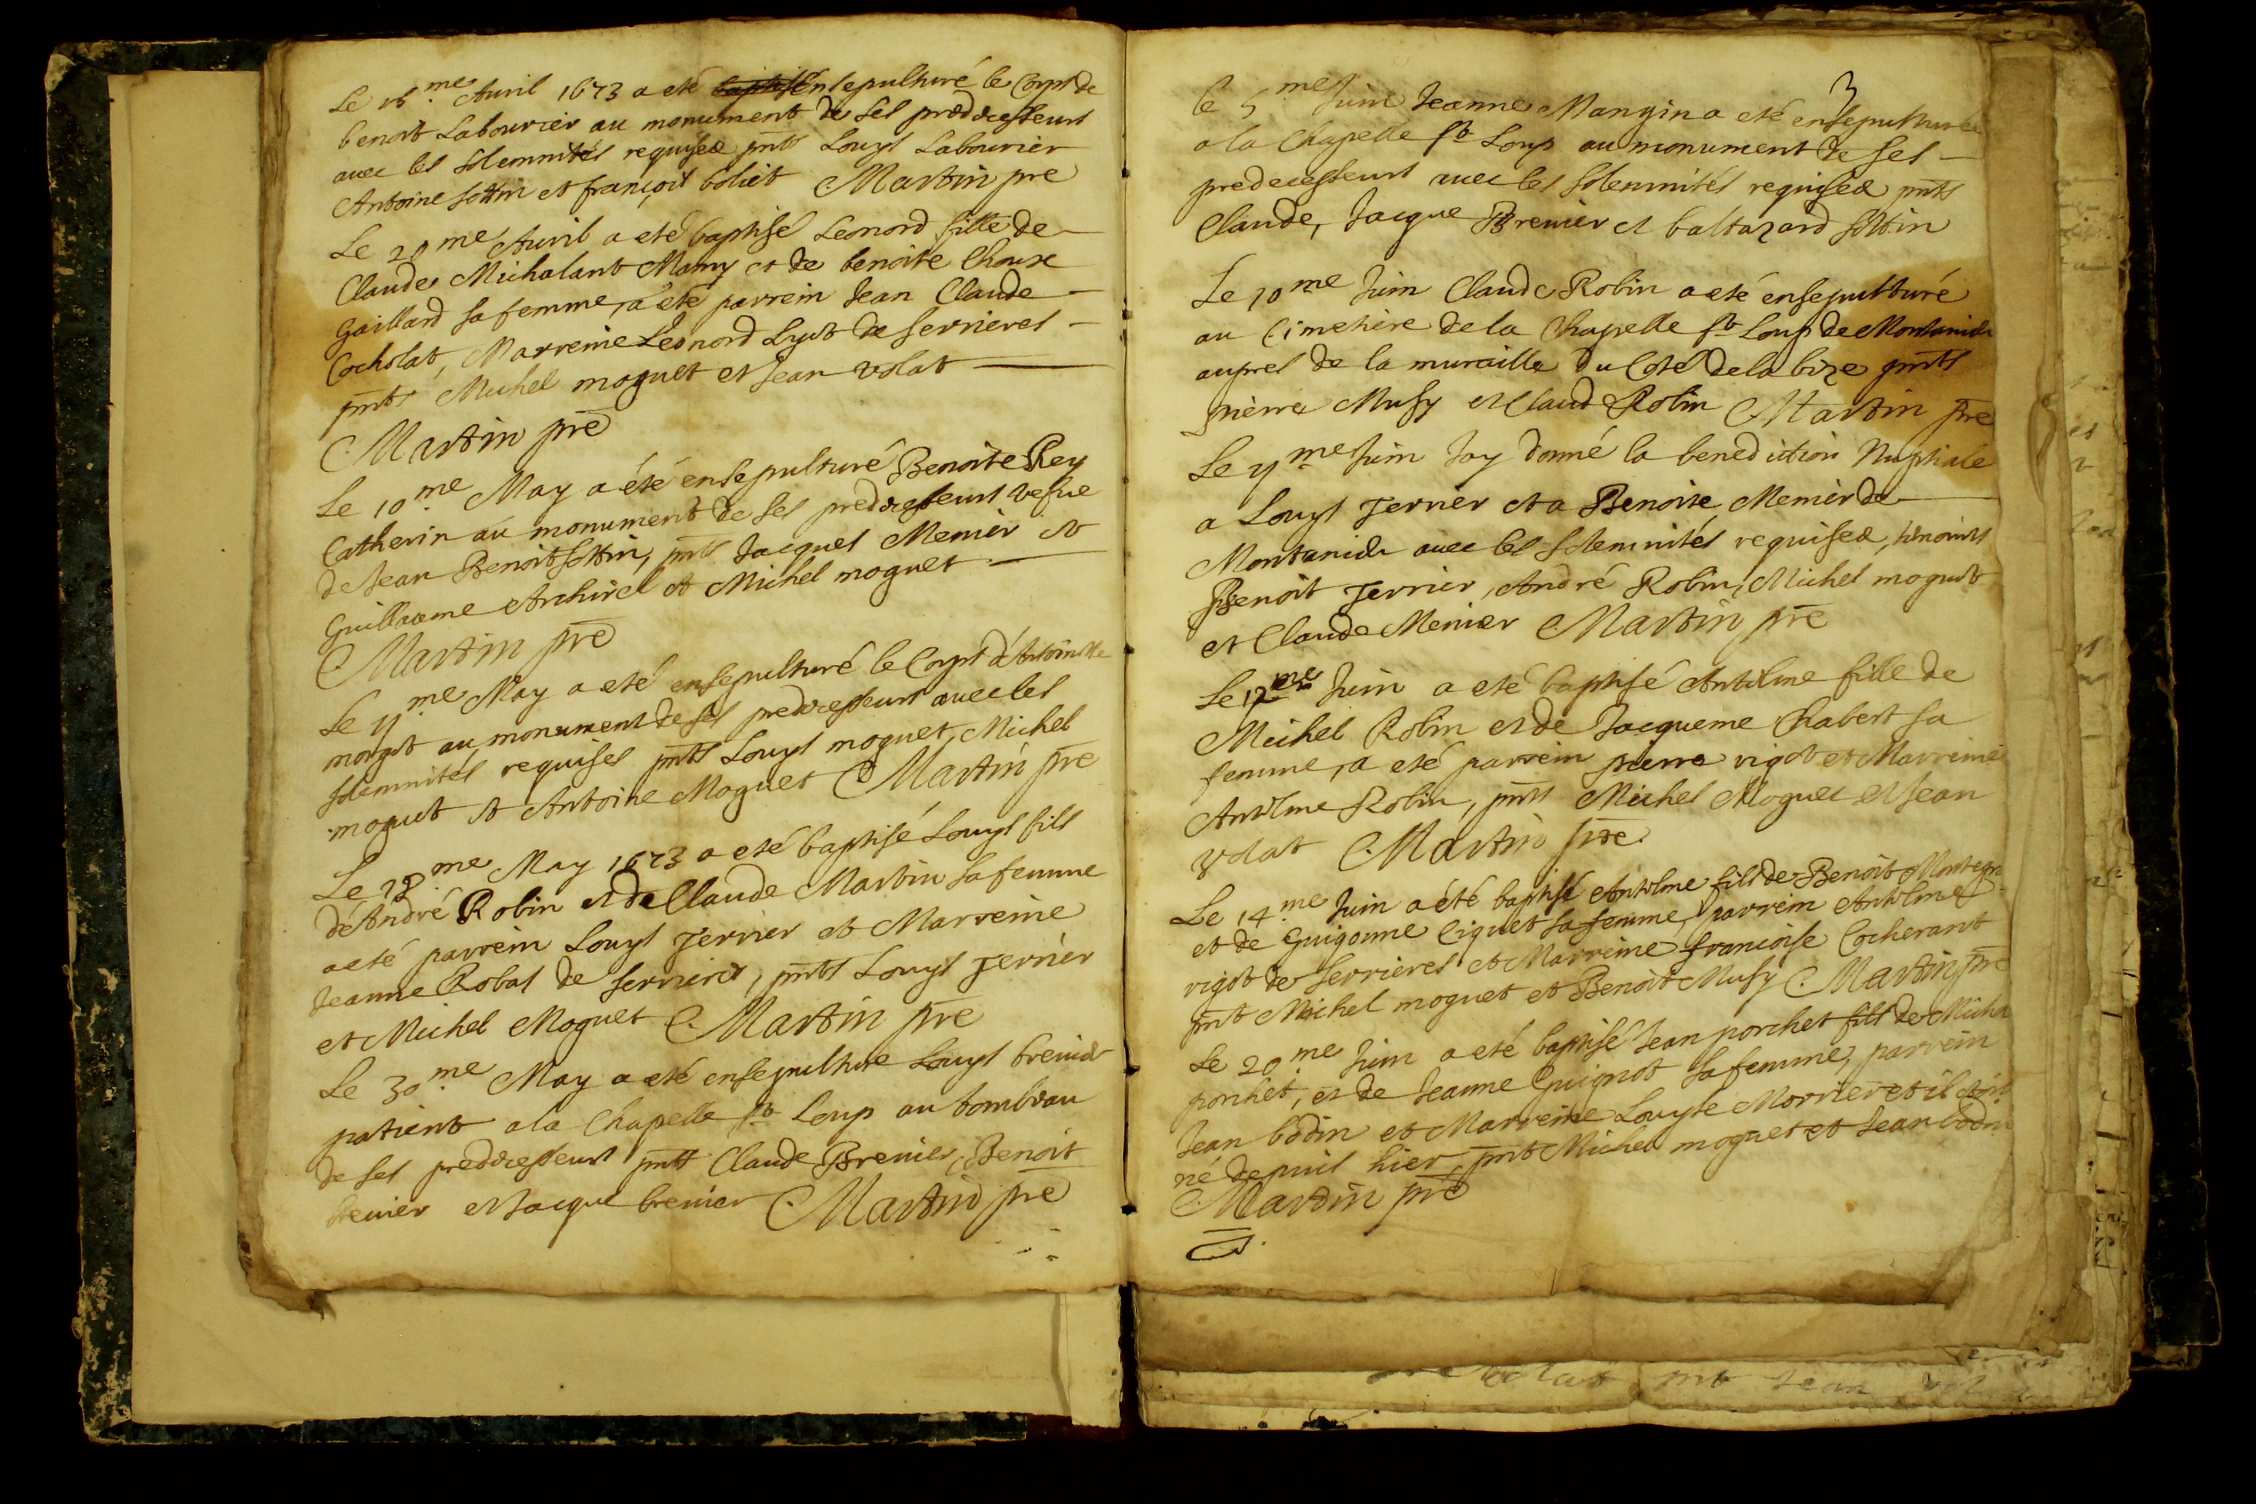 Le 16.me Avril 1673 a eté baptisé ensepulturé le Corps de
benoit Labourier au monument de ses predecesseurs
avec les solemnités requises pnts Louys Labourier
Antoine sottin et françois boliet Martin pre
Le 20.me Avril a eté baptisé Leonord fille de
Claude Michalant Mamy et de benoite Choux
Gaillard sa femme, a eté parrein Jean Claude
Cocholat, Marreine Leonord Lyot de serrieres
pnts Michel moguet et Jean volat
Martin pre
Le 10.me May a été ensepulturé Benoite Rey
Catherin au monument de ses predecesseurs vefue
de Jean Benoit sottin, pnts Jacques Menier et
Guillaume Archirel et Michel moguet
Martin pre
Le 11.me May a eté ensepulturé le Corps d'Antoinette
morgot au monument de ses predecesseurs avec les
solemnités requises pnts Louys moguet, Michel
moguet et Antoine Moguet Martin pre
Le 28.me May 1673 a eté baptisé Louys fils
d'André Robin et de Claude Martin sa femme
a eté parrein Louys Jerrier et Marreine
Jeanne Robat de serrieres, pnts Louys Jerrier
et Michel Moguet Martin pre
Le 30.me May a eté ensepulturé Louys brenier
patient a la Chapelle st Loup au tombeau
de ses predecesseurs pnts Claude Brenier, Benoit
brenier et Jacque brenier Martin pre
3
le 5.me Juin Jeanne Mangin a eté ensepulturée
a la Chapelle st Loup au monument de ses
predecesseurs avec les solemnités requises pnts
Claude, Jacque Brenier et baltazard sottin
Le 10.me Juin Claude Robin a eté ensepulturé
au Cimetière de la Chapelle st Loup de
aupres de la muraille du Coté de la bize pnts
pierre Musy et Claude Robin Martin pre
Le 11.me Juin Jay donné la benediction Nuptiale
a Louys Jerrier et a Benoite Menier de
avec les solemnités requises, temoints
Benoit Jerrier, André Robin, Michel moguet
et Claude Menier Martin pre
Le 12.me Juin a eté baptisé Antelme fille de
Michel Robin et de Jacqueme Chabert sa
femme, a eté parrein pierre rigot et Marreine
Antelme Robin, pnts Michel Moguet et Jean
volat Martin pre
Le 14.me Juin a été baptisé Antelme fils de Benoit
et de Guigonne Ciquet sa femme, parrein Antelme
rigot de serrieres et Marreine francoise Cocherant
pnt Michel moguet et Benoit Musy Martin pre
Le 20.me Juin a eté baptisé Jean porchet fils de Michel
porchet, et de Jeanne Guignot sa femme, parrein
Jean bodin et Marreine Louyse Morrier et il etoit
né depuis hier, pnt Michel moguet et Jean bodin
Martin pre
pnt Jean